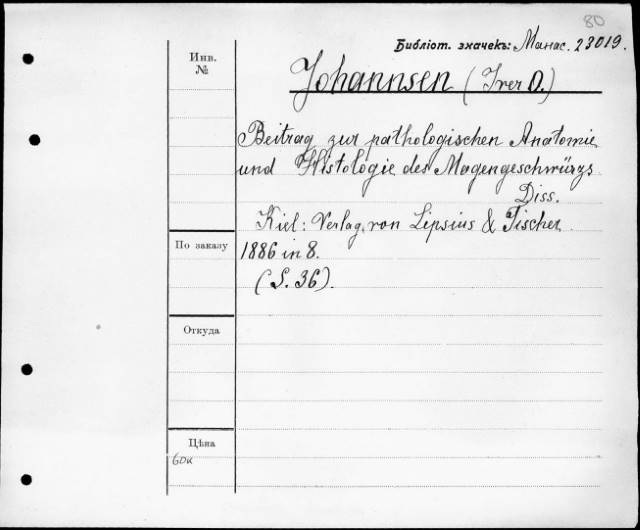 80
Библіот. значекъ: Манас. 23019.
Инв.
№
Johannsen (Iver D.)
Beitrag zur pathologischen Anatomie
und Histologie des Magengeschwürgs
Diss.
Kiel: Verlag von Lipsius & Tischer
По заказу
1886 in 8.
(S. 36).
Откуда
Цѣна
60к